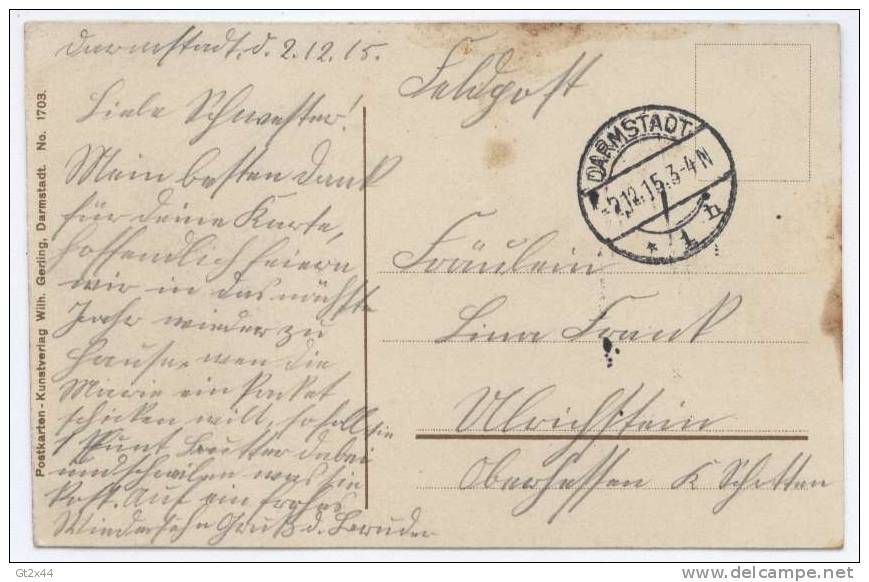 Darmstadt, d. 2.12.15.
Liebe Schwester!
Mein besten Dank
für deine Karte,
hoffendlich feiern
wir in das nächste
Jahr wieder zu
Hause, wen die
Marie ein Packet
schicken will, so soll sie
1 Pfunt Butter dabei
und schreiben was sie
kost. Auf ein frohes
Wiedersehn Gruß d. Bruder
Feldpost
DARMSTADT
-2.12.15.3-4N
* 1 h
Fräulein
Lina Frank
Ulrichstein
Oberhessen K Schotten
Postkarten-Kunstverlag Wilh. Gerling, Darmstadt. No. 1703.
Gt2x44
delcampe.net